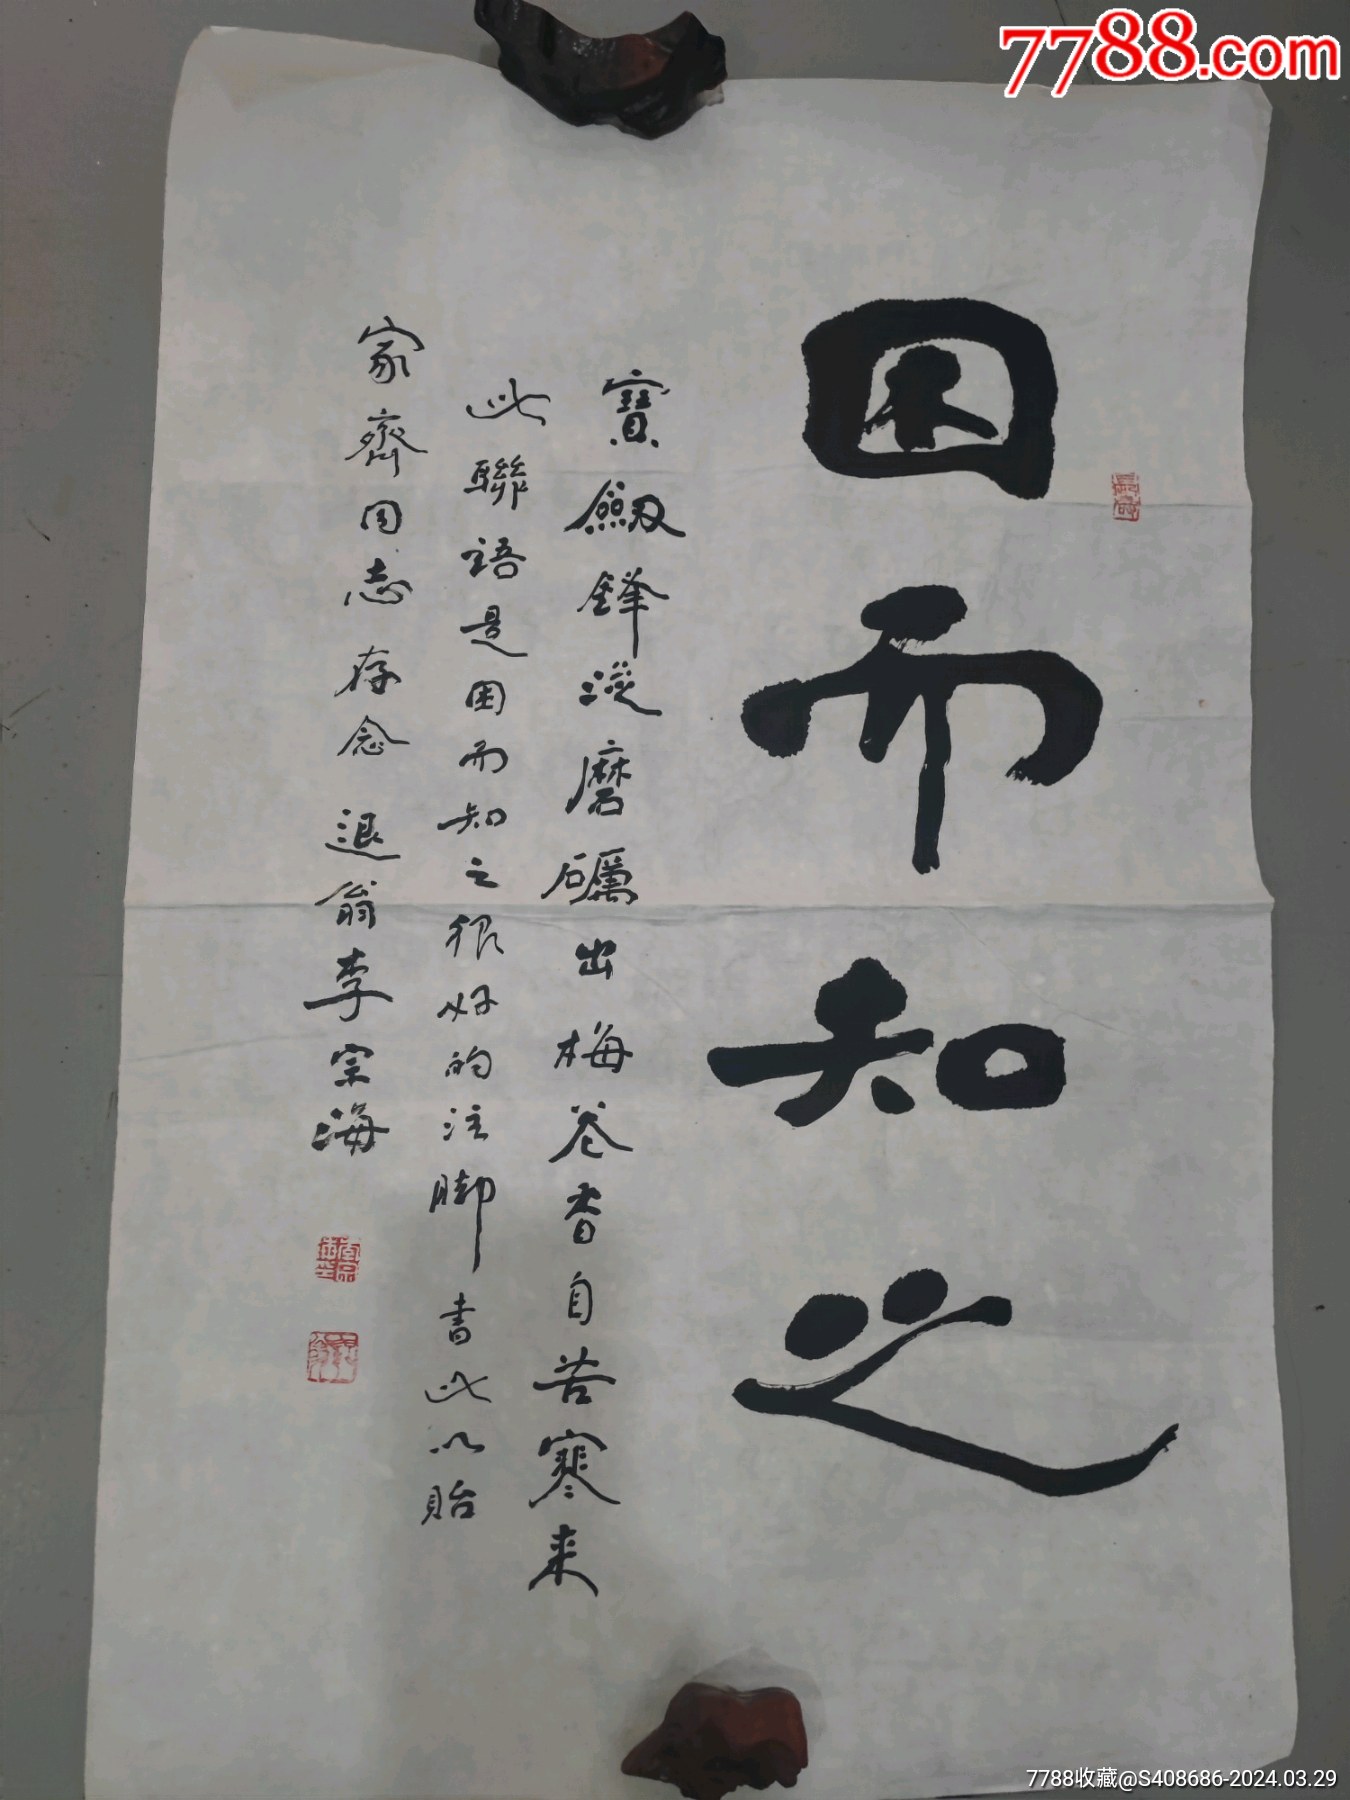 7788.com
困而知之
寶劔鋒從磨礪出梅花香自苦寒来
此聯語是困而知之很好的注脚書此以貽
家齊同志存念退翁李宗海
7788收藏@S408686-2024.03.29